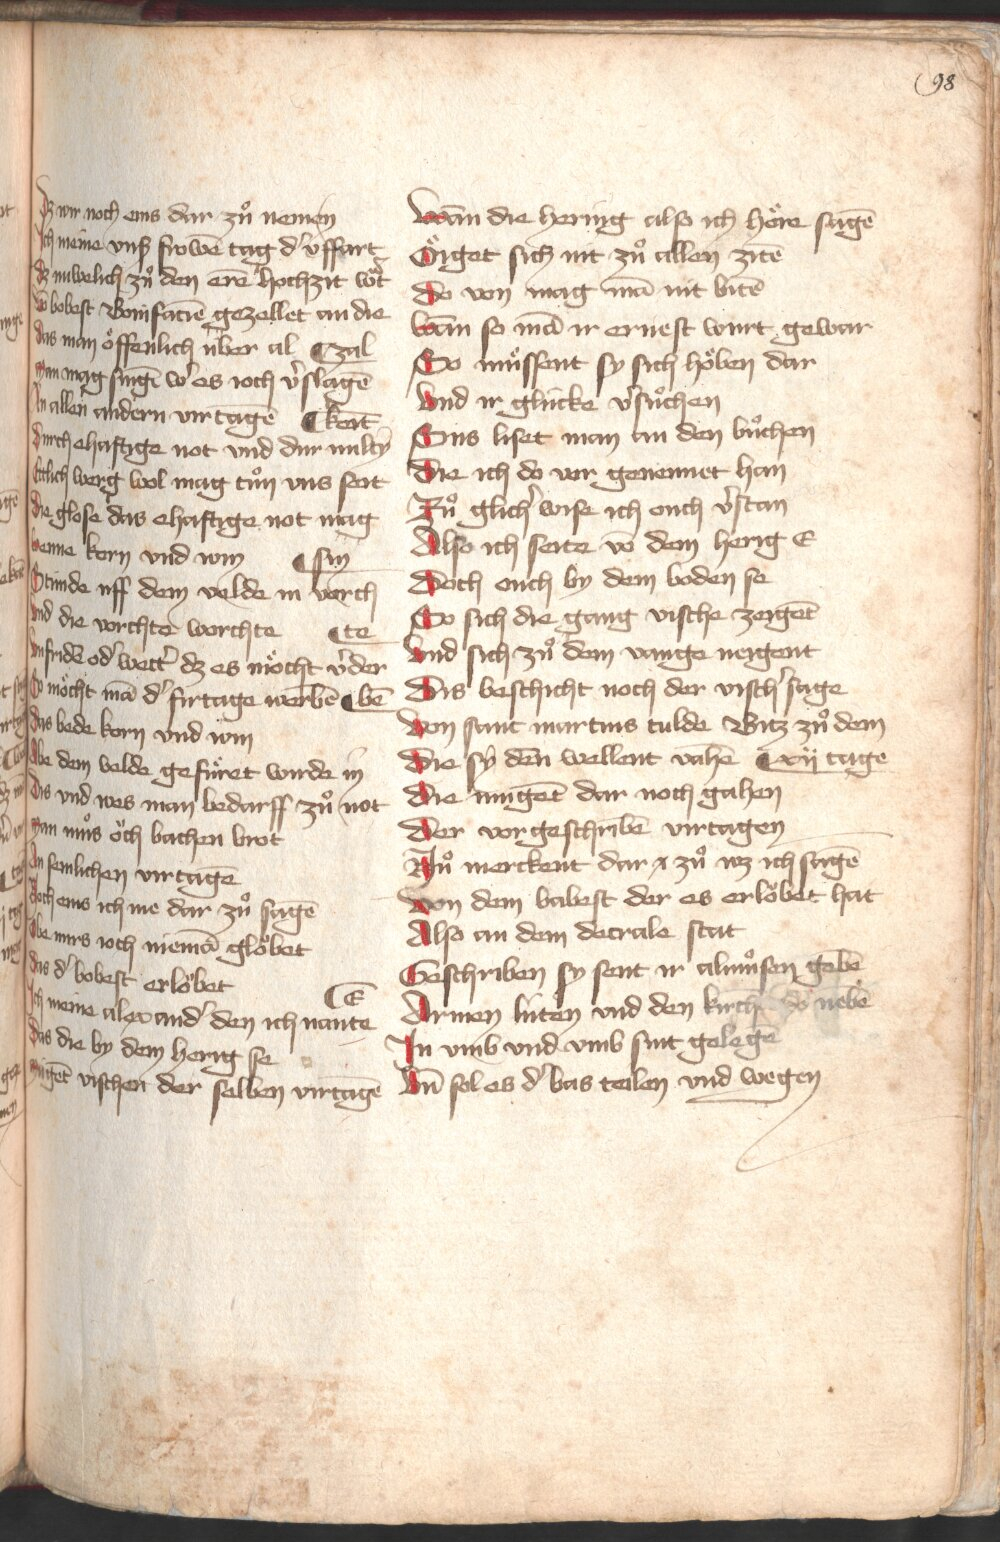 98
Dz wir noch eins dar zuͦ nemen
Ich meine vnß frowē tag d' vffart
dz nuwelich zuͦ den erē hochzit wͦt
vō bobest Bonifaciē gezellet an die
das man oͤffenlich über al ¶zal
man mag singē w' es ioch v'slagē
An allen andern virtagē ¶keit
Durch ehaftige not vnd dur milty
Etlich werg wol mag tuͦn vns seit
die glose das ehaftige not mag
wenne korn vnd win ¶sin
Stünde uff dem velde in vorch
vnd die vorchte worchte ¶te
vnfride od' wett' dz es moͤcht v'der
So moͤcht mā d' firtage werbē ¶bē
das bede korn vnd win
Abe dem velde gefuͤret wurde in
Dis vnd wes man bedarff zuͦ not
man muͦs oͤch bachen brot
An semlichen virtagē
Noch eins ich me dar zuͦ sagē
Obe mirs ioch niemā gloͤbet
das d' bobest erloͤbet
Ich meine alexand' den ich nante ¶E
Das die by dem herig se
mügēt vischen der selben virtagē
Wān die hering also ich hoͤre sagē
Oͤiget sich nit zuͦ allen zitē
Do von mag mā nit bitē
Wān so mā ir ernest wurt gewar
So muͤssent sy sich hoͤben dar
Vnd ir glücke v'suͦchen
Sus liset man an den buͦchen
Die ich do vor genennet han
Zuͦ glich' wise ich ouch v'stan
Also ich seite vō dem herig E
Doch ouch by dem boden se
So sich die gang vische zeigēt
Vnd sich zuͦ dem vange neigent
Dis beschicht noch der visch' sage
Von sant martins tulde Bitz zuͦ dem
Die sÿ dēn wellent vahē ¶xij tage
Die mügēt dar noch gahen
Der vorgeschribē virtagen
Nuͦ merckent dar zuͦ wz ich sagē
Von dem babest der es erloͤbet hat
Also an dem decrale stat
Geschriben sy sent ir almuͦsen gebē
Armen lüten vnd den kirch' do nebē
In vmb vnd vmb sint gelegē
Vn̄ sol es d' bas teilen vnd wegen